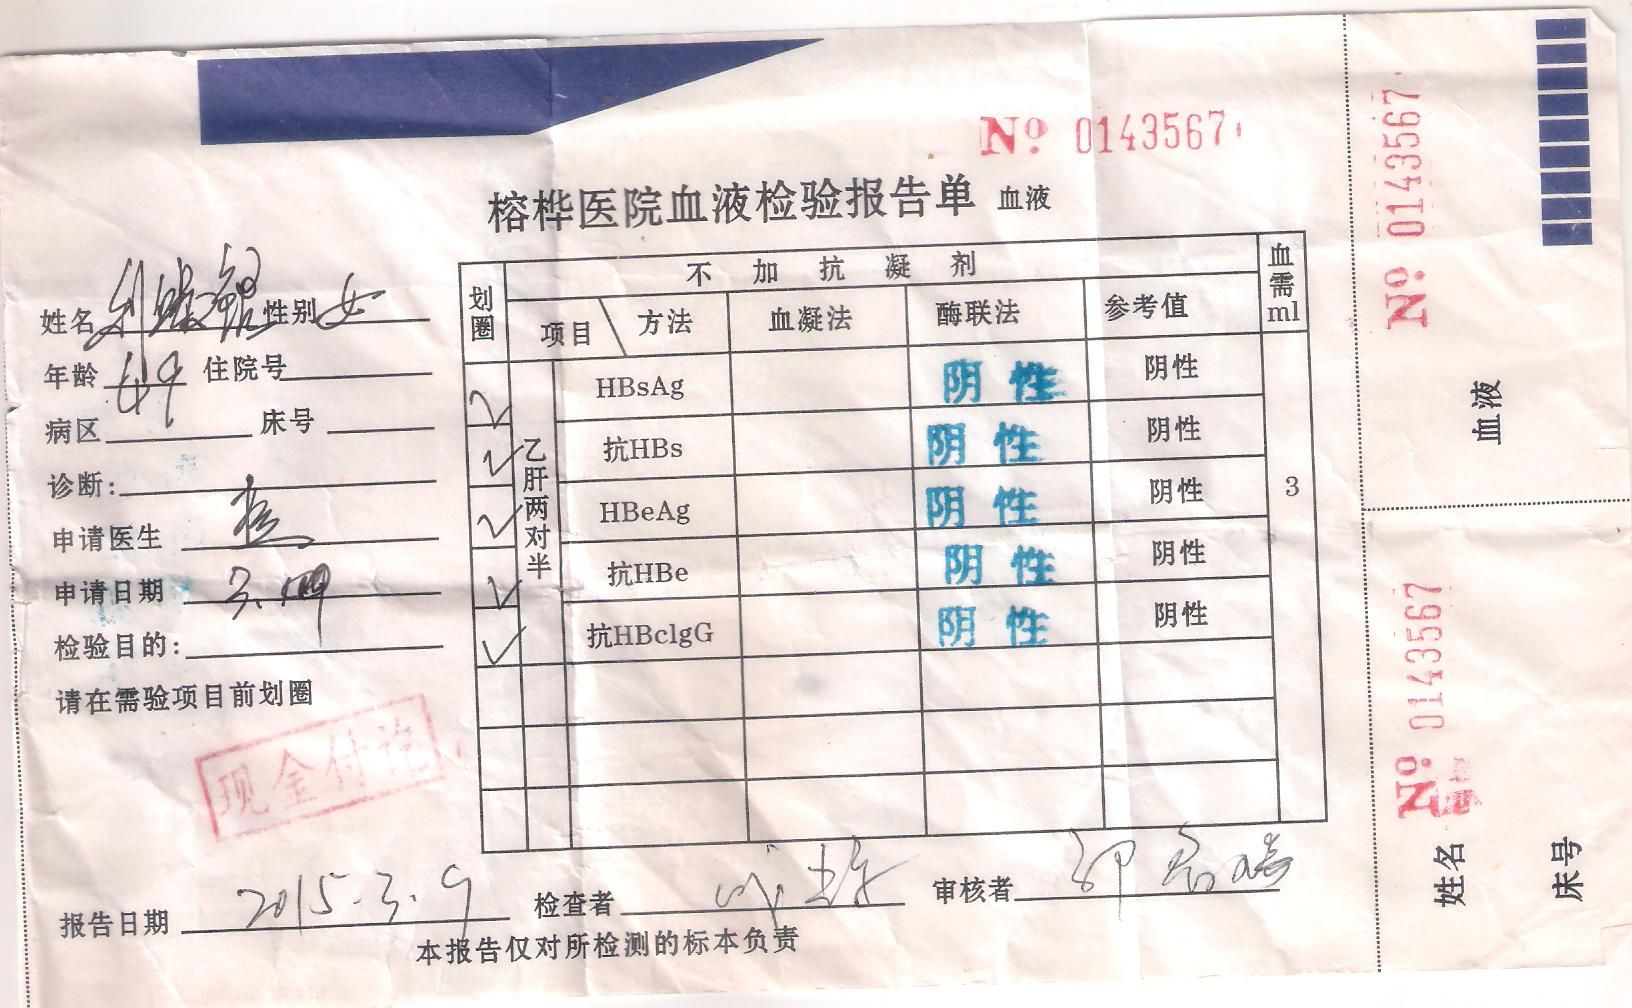 No 0143567
榕桦医院血液检验报告单 血液
姓名 性别 女
年龄 49 住院号
病区 床号
诊断:
申请医生
申请日期
检验目的:
请在需验项目前划圈
现金付讫
划圈 不加抗凝剂 血需ml
项目 方法 血凝法 酶联法 参考值
乙肝两对半
HBsAg 阴性 阴性
抗HBs 阴性 阴性
HBeAg 阴性 阴性 3
抗HBe 阴性 阴性
抗HBclgG 阴性 阴性
报告日期 2015.3.9 检查者 审核者
本报告仅对所检测的标本负责
No 0143567
血液
No 0143567
姓名
床号